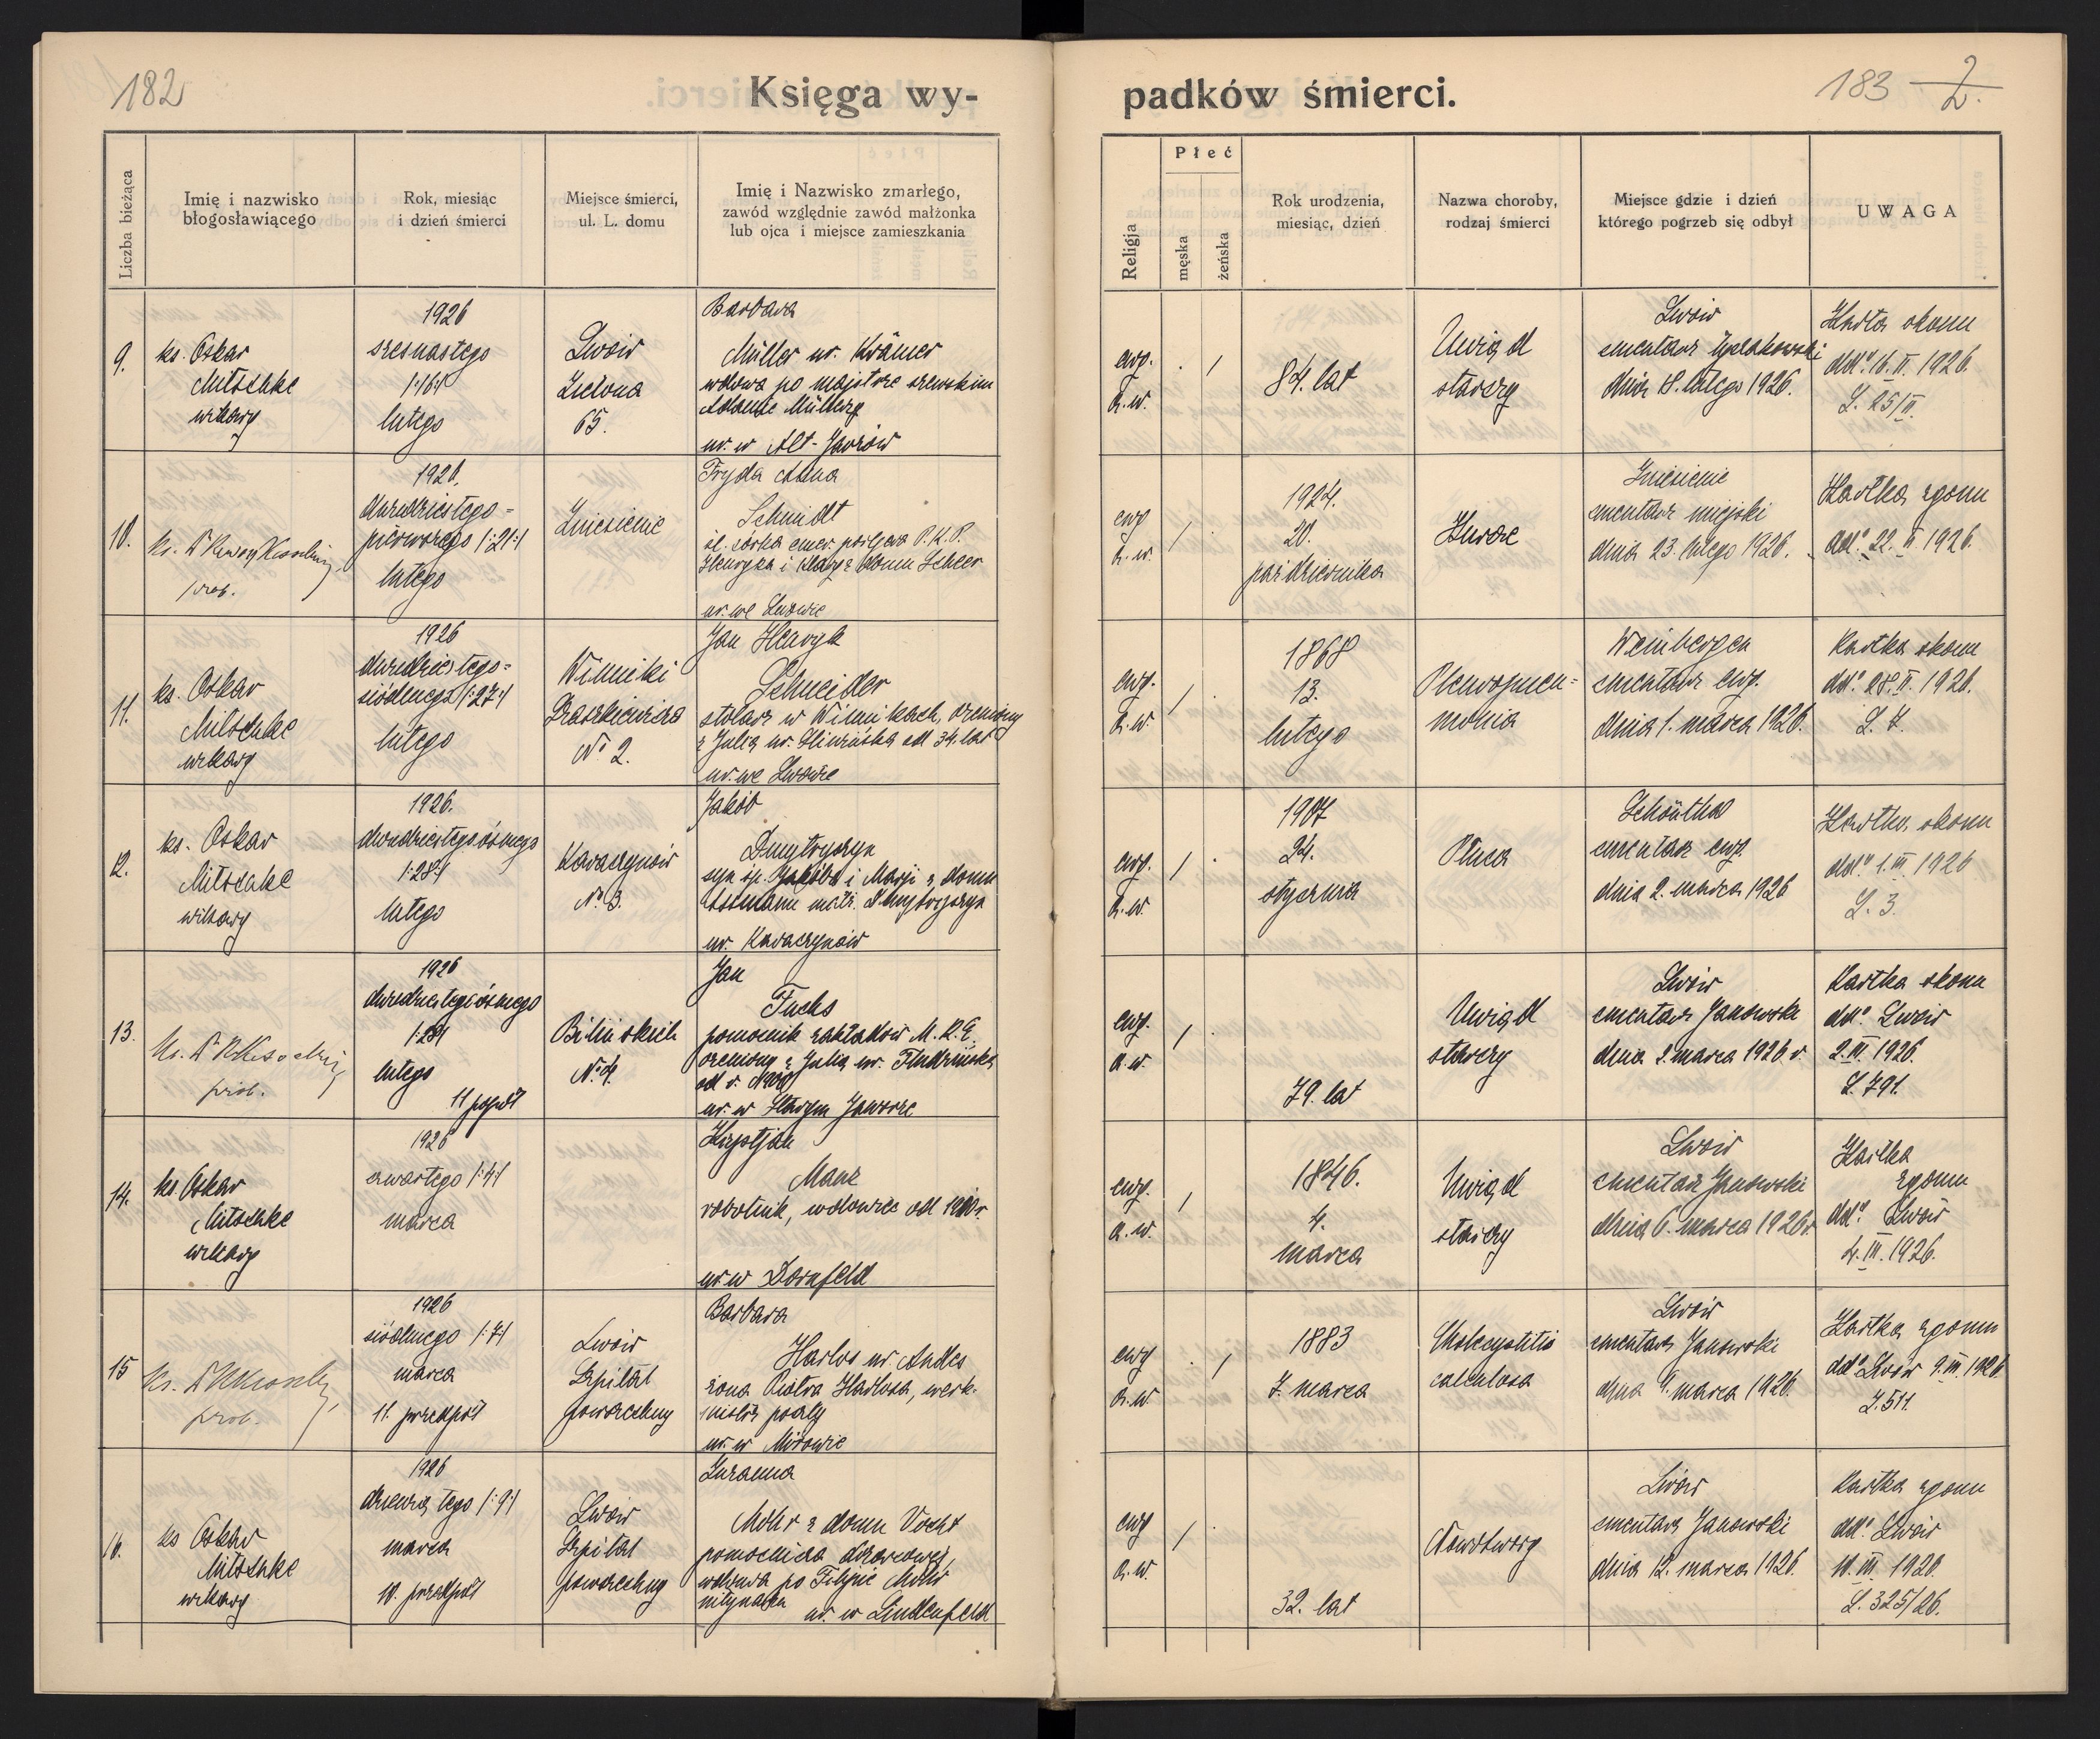 182
Księga wy-
Liczba bieżąca
Imię i nazwisko
błogosławiącego
Rok, miesiąc
i dzień śmierci
Miejsce śmierci,
ul. L. domu
Imię i Nazwisko zmarłego,
zawód względnie zawód małżonka
lub ojca i miejsce zamieszkania
9.
ks. Oskar
Mitschke
wikary
1926
szesnastego
/:16:/
lutego
Lwów
Zielona
65.
Barbara
Müller ur. Krämer
wdowa po majstrze szewskim
Adamie Müllerze
ur. w Alt-Jaworów
10.
prob.
1926.
dwudziestego-
pierwszego /:21:/
lutego
Zniesienie
Fryda Anna
Schmidt
śl. córka emer. portjera P.K.P.
Henryka i z domu Scheer
ur. we Lwowie
11.
ks. Oskar
Mitschke
wikary
1926
dwudziestego-
siódmego /:27:/
lutego
Winniki
№ 2.
Jan Henryk
Schneider
stolarz w Winnikach, żeniony
z Julią ur. Śliwińska od 34. lat
ur. we Lwowie
12.
ks. Oskar
Mitschke
wikary
1926.
dwudziestego ósmego
/:28:/
lutego
Karaczynów
№ 3.
Jakób
Dmytryszyn
syn śp. Jakóba i Marji z domu
ur. Karaczynów
13.
prob.
1926
dwudziestego ósmego
/:28/
lutego
11 popoł
Bilińskich
№ 4.
Jan
Fuchs
pomocnik zakładów M.K.E.
żeniony z Julią ur.
ur. w Starym Jaworze
14.
ks. Oskar
Mitschke
wikary
1926
czwartego /:4:/
marca
Krystjan
Manz
robotnik, wdowiec od
ur. w Dornfeld
15
prob.
1926
siódmego /:7:/
marca
11. przedpoł
Lwów
Szpital
powszechny
Barbara
Harlos ur. Andres
żona Piotra Harlosa, werk-
mistrz poczty
ur. w
16.
ks Oskar
Mitschke
wikary
1926
dziewiątego /:9:/
marca
10. przedpoł
Lwów
Szpital
powszechny
Zuzanna
Mohr z domu Vocht
pomocnica dozorcowej,
wdowa po Filipie Mohr
ur. w Lindenfeld
padków śmierci.
183
2.
Religja
Płeć
męska
żeńska
Rok urodzenia,
miesiąc, dzień
Nazwa choroby,
rodzaj śmierci
Miejsce gdzie i dzień
którego pogrzeb się odbył
UWAGA
ewg.
a.w.
. /
84. lat
Uwiąd
starczy
Lwów
cmentarz Łyczakowski
dnia 18. lutego 1926.
Kartka skonu
ddº 16. II. 1926.
L. 25/II.
ewg
a.w.
/ .
1904.
20.
października
Zniesienie
cmentarz miejski
dnia 23. lutego 1926.
Kartka zgonu
ddº 22. II. 1926.
ewg.
a.w.
/ .
1868
13.
lutego
Pleuropneu-
monia
Weinbergen
cmentarz ewg.
dnia 1. marca 1926.
Kartka skonu
ddº 28. II. 1926.
L. 7.
ewg.
a.w.
/ .
1907
24.
stycznia
Płuca
Schönthal
cmentarz ewg.
dnia 2. marca 1926
Kartka skonu
ddº 1. III. 1926
L. 3.
ewg.
a.w.
/ .
79. lat
Uwiąd
starczy
Lwów
cmentarz Janowski
dnia 2. marca 1926 r.
Kartka skonu
ddº Lwów
2. III. 1926.
L. 791.
ewg.
a.w.
/
1846.
4.
marca
Uwiąd
starczy
Lwów
cmentarz Janowski
dnia 6. marca 1926 r.
Kartka
zgonu
ddº Lwów
4. III. 1926.
ewg
a.w.
. /
1883
7. marca
Cholecystitis
calculosa
Lwów
cmentarz Janowski
dnia 9. marca 1926.
Kartka zgonu
ddº Lwów 9. III. 1926
L. 511.
ewg
a.w.
/ .
32. lat
Nowotwory
Lwów
cmentarz Janowski
dnia 12. marca 1926.
Kartka zgonu
ddº Lwów
10. III. 1926.
L. 325/26.